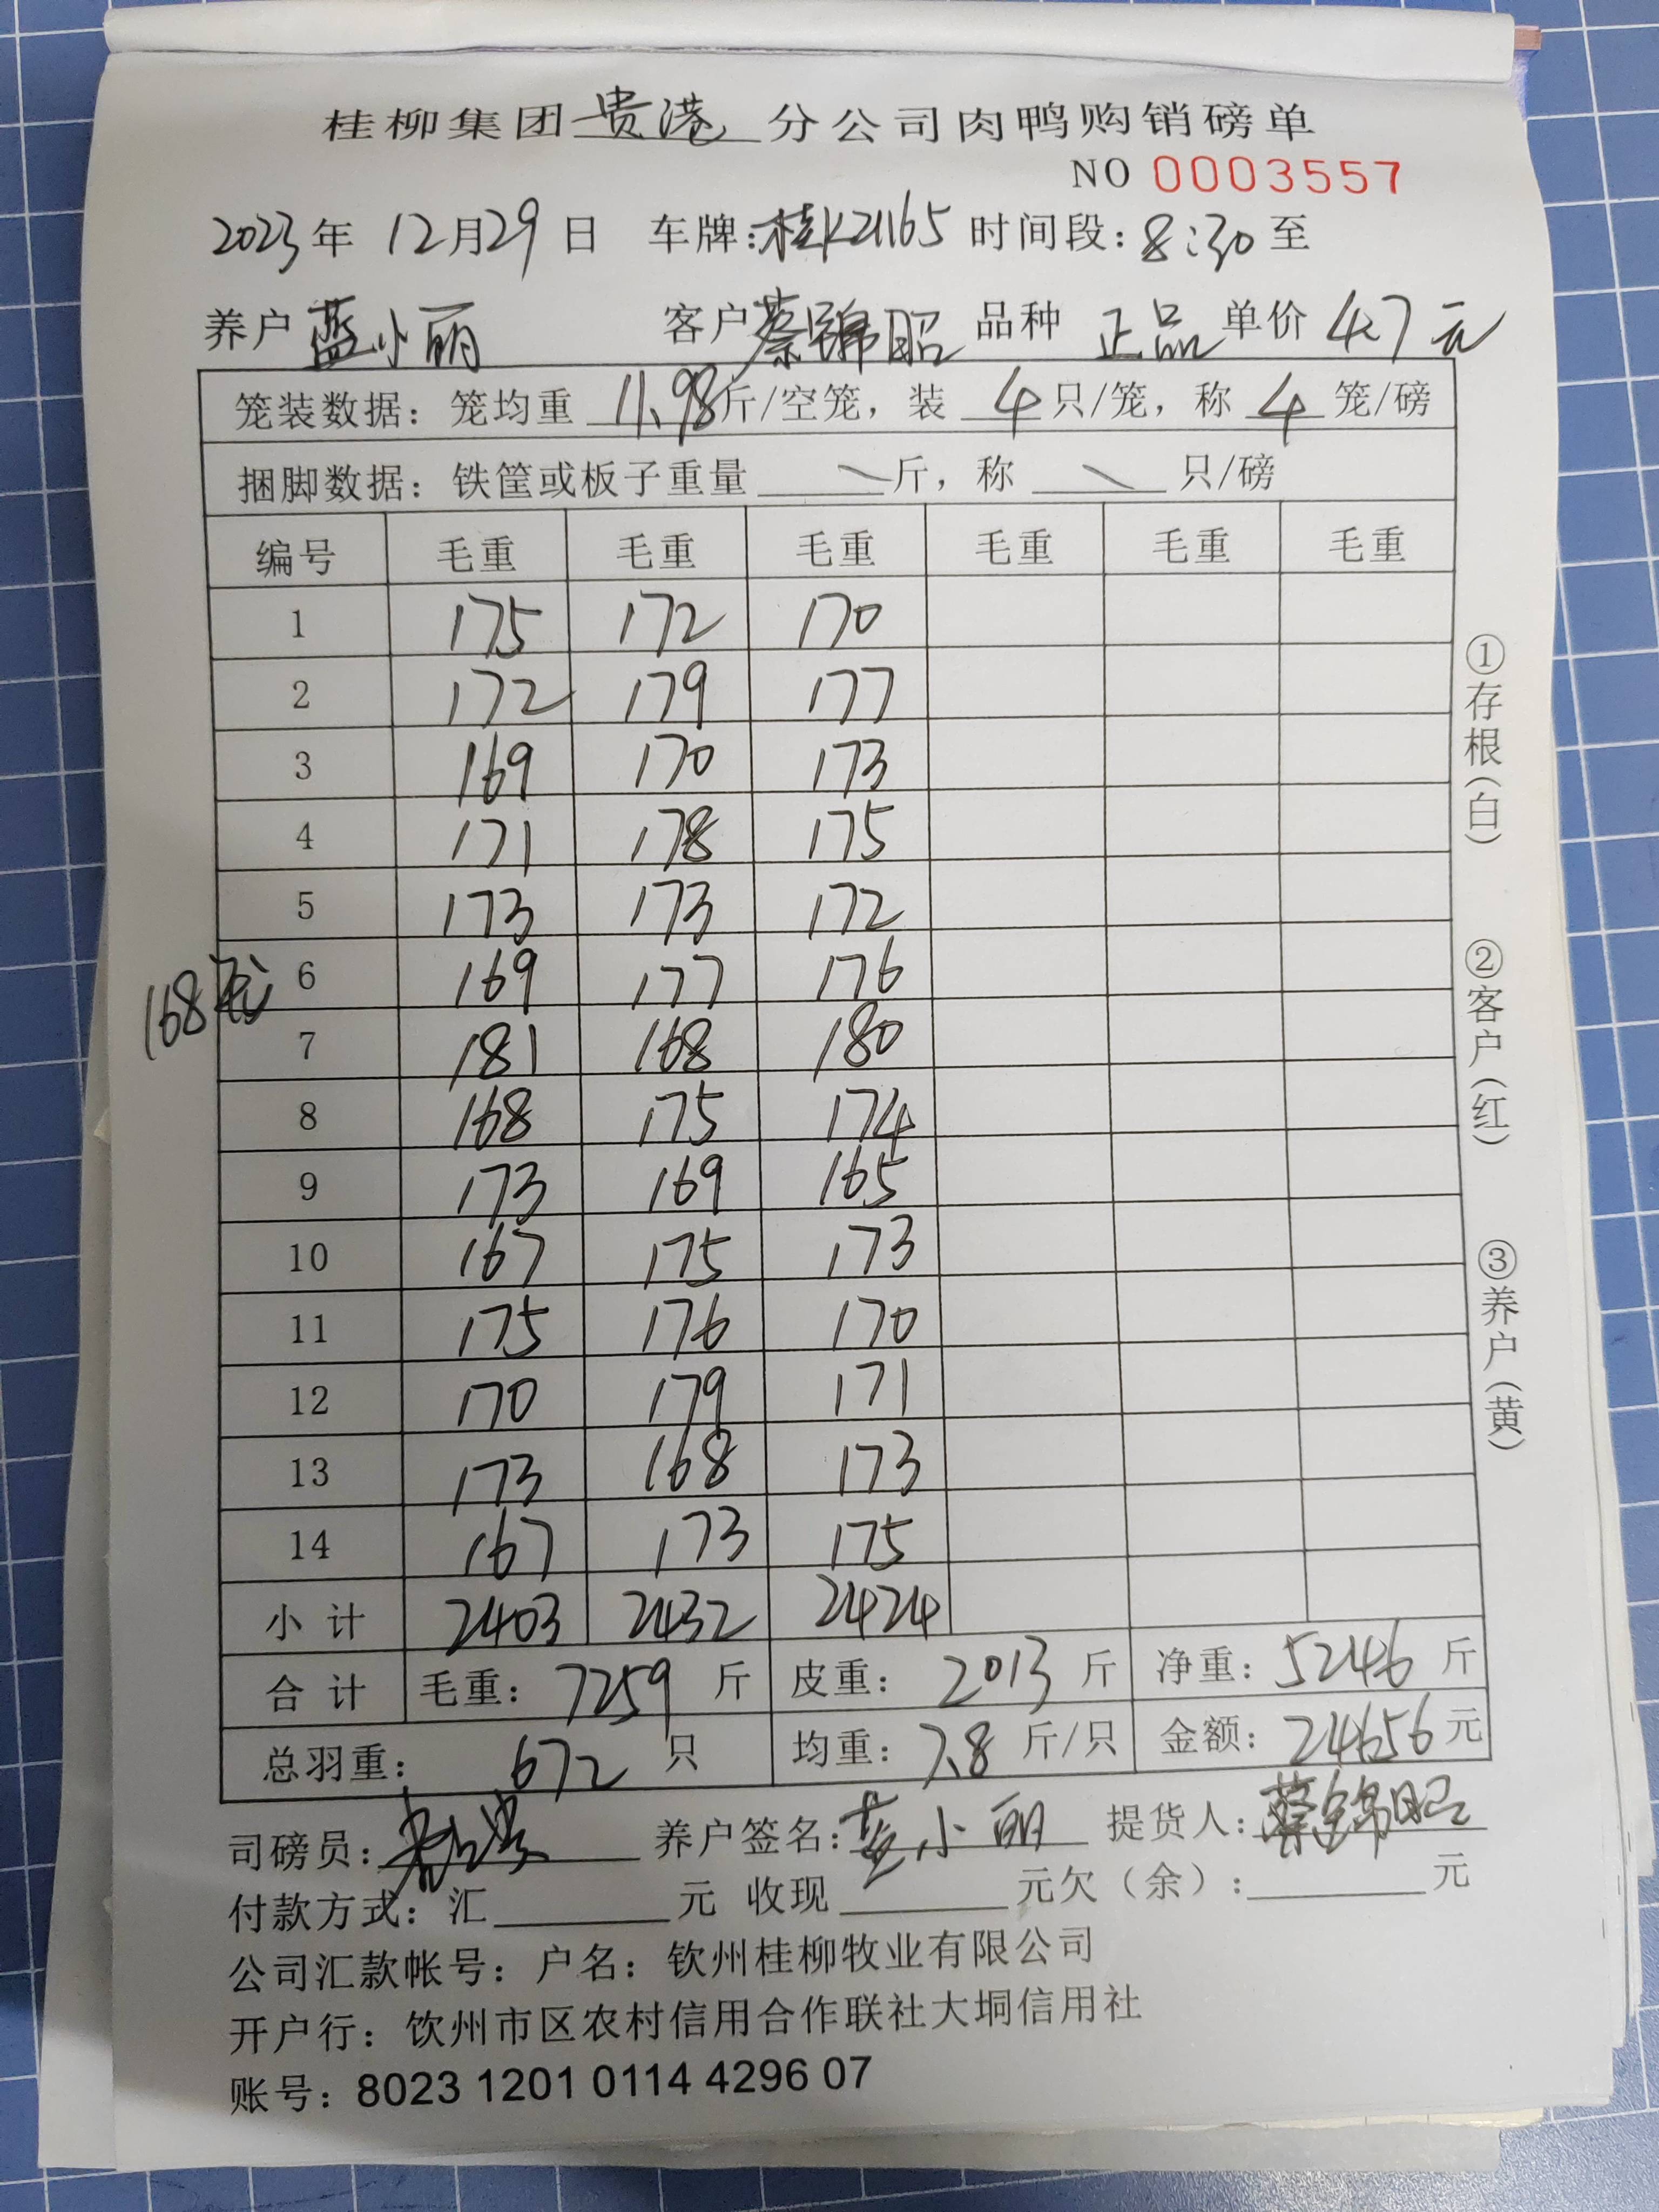 桂柳集团贵港分公司肉鸭购销磅单
NO 0003557
2023年 12月29日 车牌:桂K21165 时间段:8:30至
养户 蓝小丽 客户 蔡锦昭 品种 正品 单价 4.7元
笼装数据:笼均重 11.98斤/空笼,装 4只/笼,称 4 笼/磅
捆脚数据:铁筐或板子重量 \斤,称 \ 只/磅
编号 毛重 毛重 毛重 毛重 毛重 毛重
1 175 172 170
2 172 179 177
3 169 170 173
4 171 178 175
5 173 173 172
168笼 6 169 177 176
7 181 168 180
8 168 175 174
9 173 169 165
10 167 175 173
11 175 176 170
12 170 179 171
13 173 168 173
14 167 173 175
小计 2403 2432 2424
合计 毛重:7259 斤 皮重:2013 斤 净重:5246 斤
总羽重:672 只 均重:7.8 斤/只 金额:24656元
司磅员: 养户签名:蓝小丽 提货人:蔡锦昭
付款方式:汇 元 收现 元欠(余): 元
公司汇款帐号:户名:钦州桂柳牧业有限公司
开户行:钦州市区农村信用合作联社大垌信用社
账号:8023 1201 0114 4296 07
①存根(白)
②客户(红)
③养户(黄)